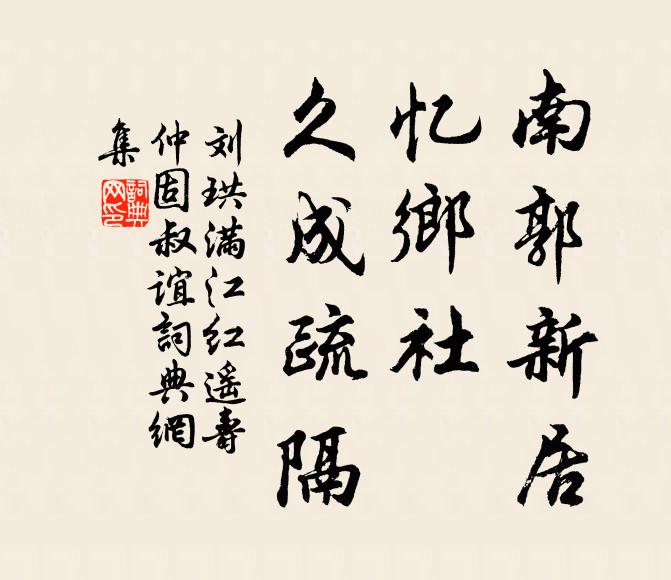 南郭新居
忆鄉社
久成疏隔
刘珙满江红遥壽
仲固叔谊詞典網
集
詞典
网印